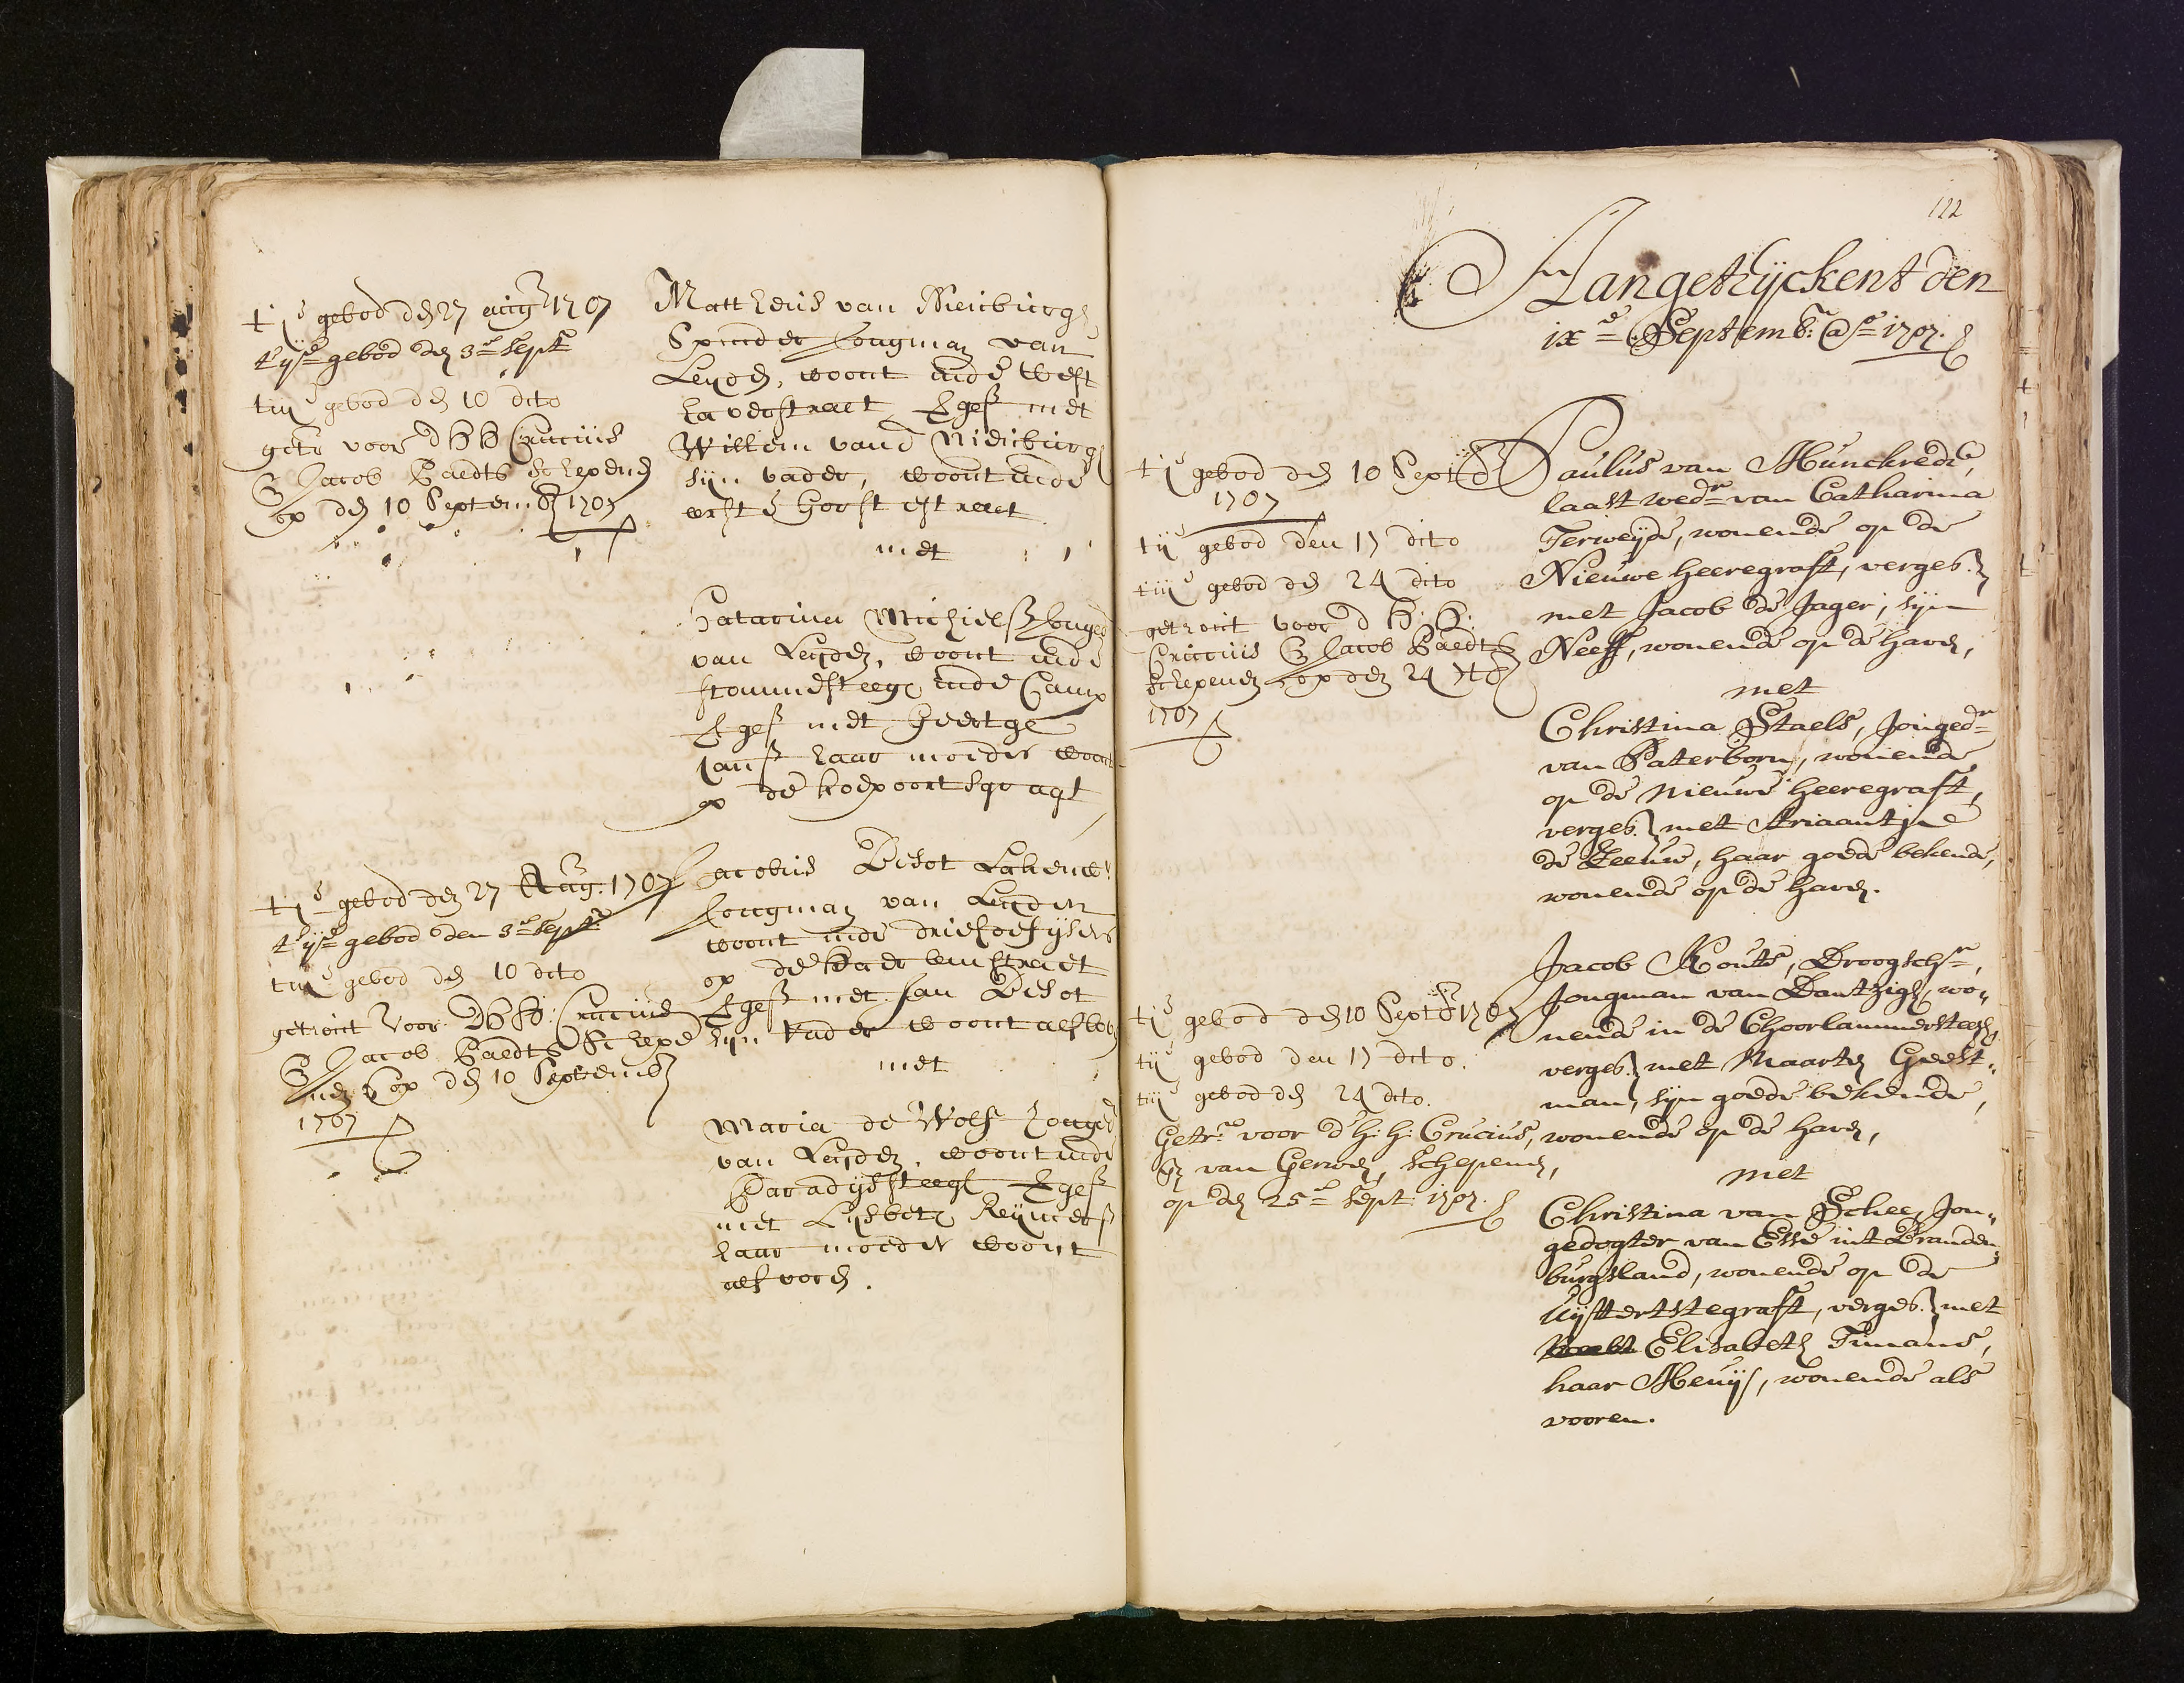 t' j^e gebod den 27 aug^o 1707
t' ij^de gebod den 3^de Sept^r
t iij^e gebod den 10 dito
getr voor d H H Crucius
En Jacob Paedts Schepenen
op den 10 September 1707
Mattheus van Nienburgh
Spinder Jongman van
Leyden, woont inde West
haverstraet, Vges met
Willem vand Nienburgh
syn vader, woont inde
verste Gorstestraet
met
Catarina Michiels Jonged
van Leyden, woont inde
stommesteegh inde Camp
Vges met Geertge
Jans haar moeder woont
op de koepoortsgragt
t' j^e gebod den 27 Aug: 1707
t' ij^de gebod den 3^de Sept^r
t iij^e gebod den 10 dito
getrout Voor D H H: Crucius
En Jacob Paedts Schepe
nen op den 10 September
1707
Jacobus Desot Lakenw^r
Jongman van Leyden
woont inde driehoefysers
op de Haerlemstraet
Vges met Jan Desot
syn Vader woont als voor
met
Maria de Wolf Jonged
van Leyden, woont inde
Paradyssteegh Vges
met Lysbeth Reynders
haar moeder woont
als voorn.
122
Aangeteyckent den
ix^de Septemb^r. A^o 1707.
t j^e gebod den 10 Sept^r
1707
t ij^e gebod den 17 dito
t iij^e gebod den 24 dito
getrout voor d H: H:
Crucius En Jacob Paedts
Schepenen op den 24 dto
1707
Paulus van Munckrede,
laast wed^r van Catharina
Terweyde, wonende op de
Nieuwe heeregraft, verges.
met Jacob de Jager, syn
Neeff, wonende op de haven,
met
Christina Staels, Jonged^r
van Paterborn, wonende
op de Nieuwe heeregraft,
verges. met Ariaantjne
de Leeuw, haar goede bekende,
wonende op de haven.
t j^e gebod den 10 Sept^r 1707
t ij^e gebod den 17 dito.
t iij^e gebod den 24 dito.
Getr^t voor d' H: H: Crucius,
En van Gerwen, Schepenen,
op den 25^de Sept: 1707.
Jacob Kouts, Droogsch^r,
Jongman van Dantzigh, wo„
nende in de Choorlammersteegh,
verges. met Maarten Geest„
man, syn goede bekende,
wonende op de haven,
met
Christina van Schee, Jon„
gedogter van Esse int Branden„
burgsland, wonende op de
Uyttertstegraft, verges. met
Elisabeth Timans,
haar Meuy, wonende als
vooren.